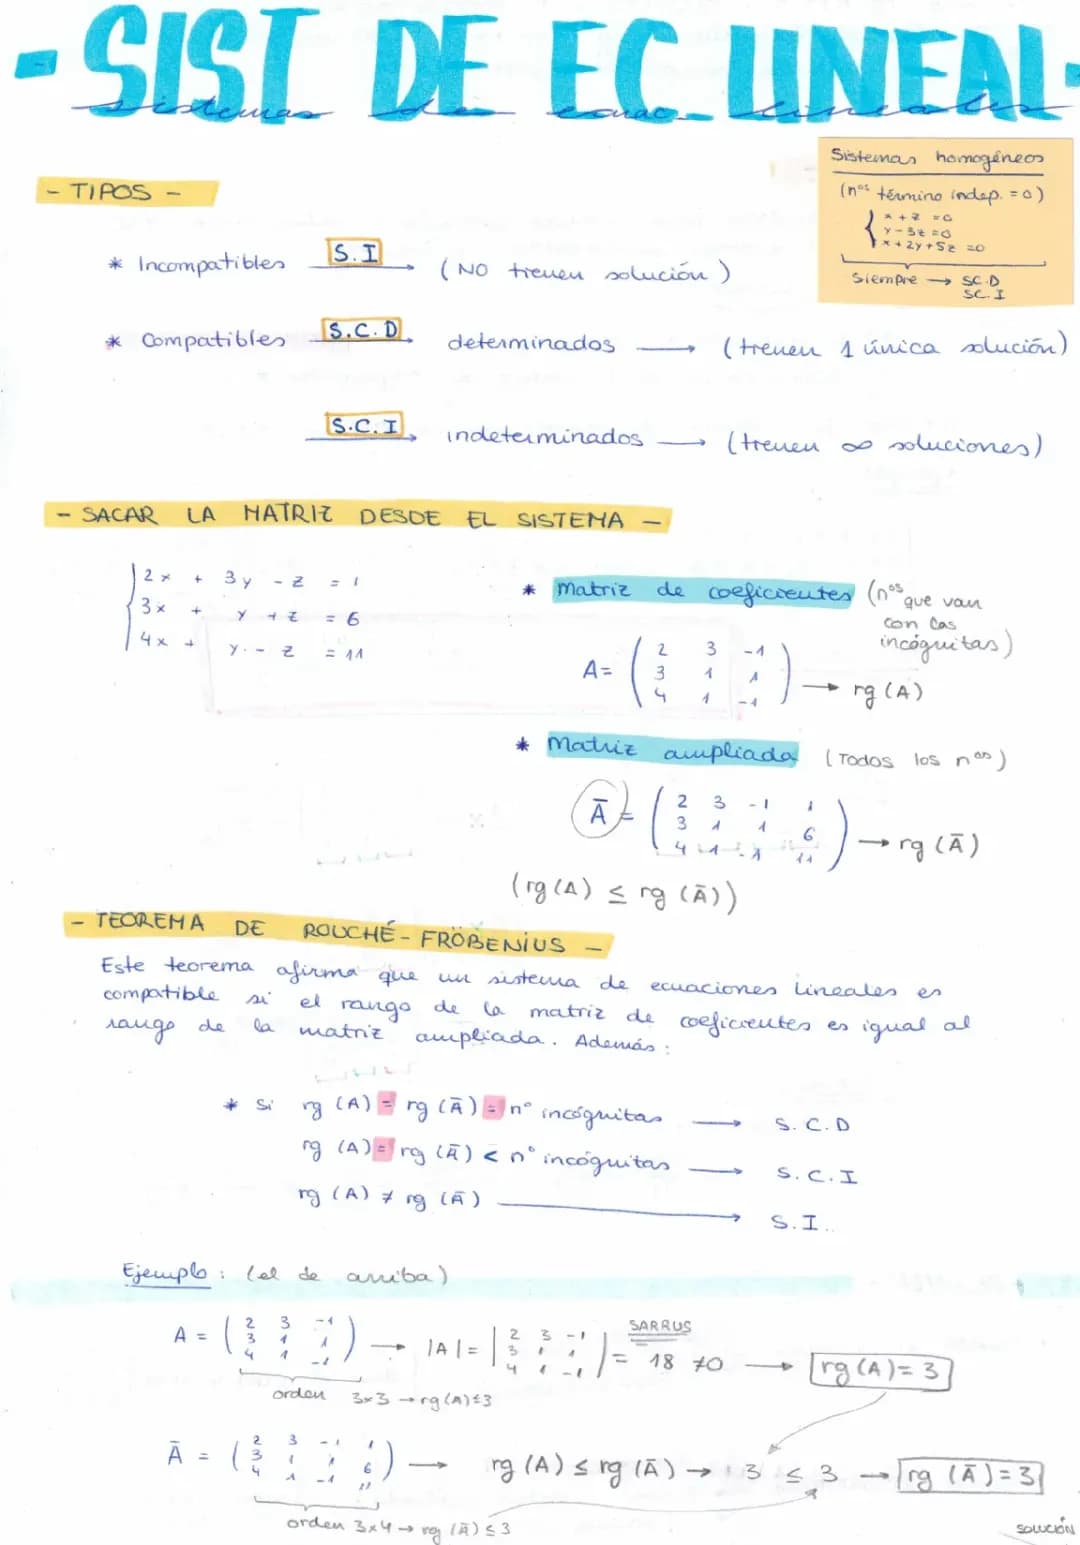 - SIST DE EC LINEAL -
sistemas de ecuac. lineales
Sistemas homogéneos
(nos término indep. = 0)
x + z = 0
y - 3z = 0
x + 2y + 5z = 0
Siempre → SC.D
SC.I
- TIPOS -
* Incompatibles S.I → (NO tienen solución)
* Compatibles S.C.D → determinados → (tienen 1 única solución)
S.C.I → indeterminados → (tienen ∞ soluciones)
- SACAR LA MATRIZ DESDE EL SISTEMA -
2x + 3y - z = 1
3x + y + z = 6
4x + y - z = 11
* Matriz de coeficientes (nos que van
con las
incógnitas)
A = ( 2 3 -1
3 1 1
4 1 -1 ) → rg (A)
* Matriz ampliada (Todos los nos)
Ā = ( 2 3 -1 1
3 1 1 6
4 1 -1 11 ) → rg (Ā)
(rg (A) ≤ rg (Ā))
- TEOREMA DE ROUCHÉ - FRÖBENIUS -
Este teorema afirma que un sistema de ecuaciones lineales es
compatible si el rango de la matriz de coeficientes es igual al
rango de la matriz ampliada. Además:
* Si rg (A) = rg (Ā) = nº incógnitas → S.C.D
rg (A) = rg (Ā) < nº incógnitas → S.C.I
rg (A) ≠ rg (Ā) → S.I..
Ejemplo: (el de arriba)
SARRUS
A = ( 2 3 -1
3 1 1
4 1 -1 ) → |A| = | 2 3 -1
3 1 1
4 1 -1 | = 18 ≠0 → rg (A) = 3
orden 3x3 → rg (A) ≤ 3
Ā = ( 2 3 -1 1
3 1 1 6
4 1 -1 11 ) → rg (A) ≤ rg (Ā) → 3 ≤ 3 → rg (Ā) = 3
orden 3x4 → rg (Ā) ≤ 3
SOLUCIÓN